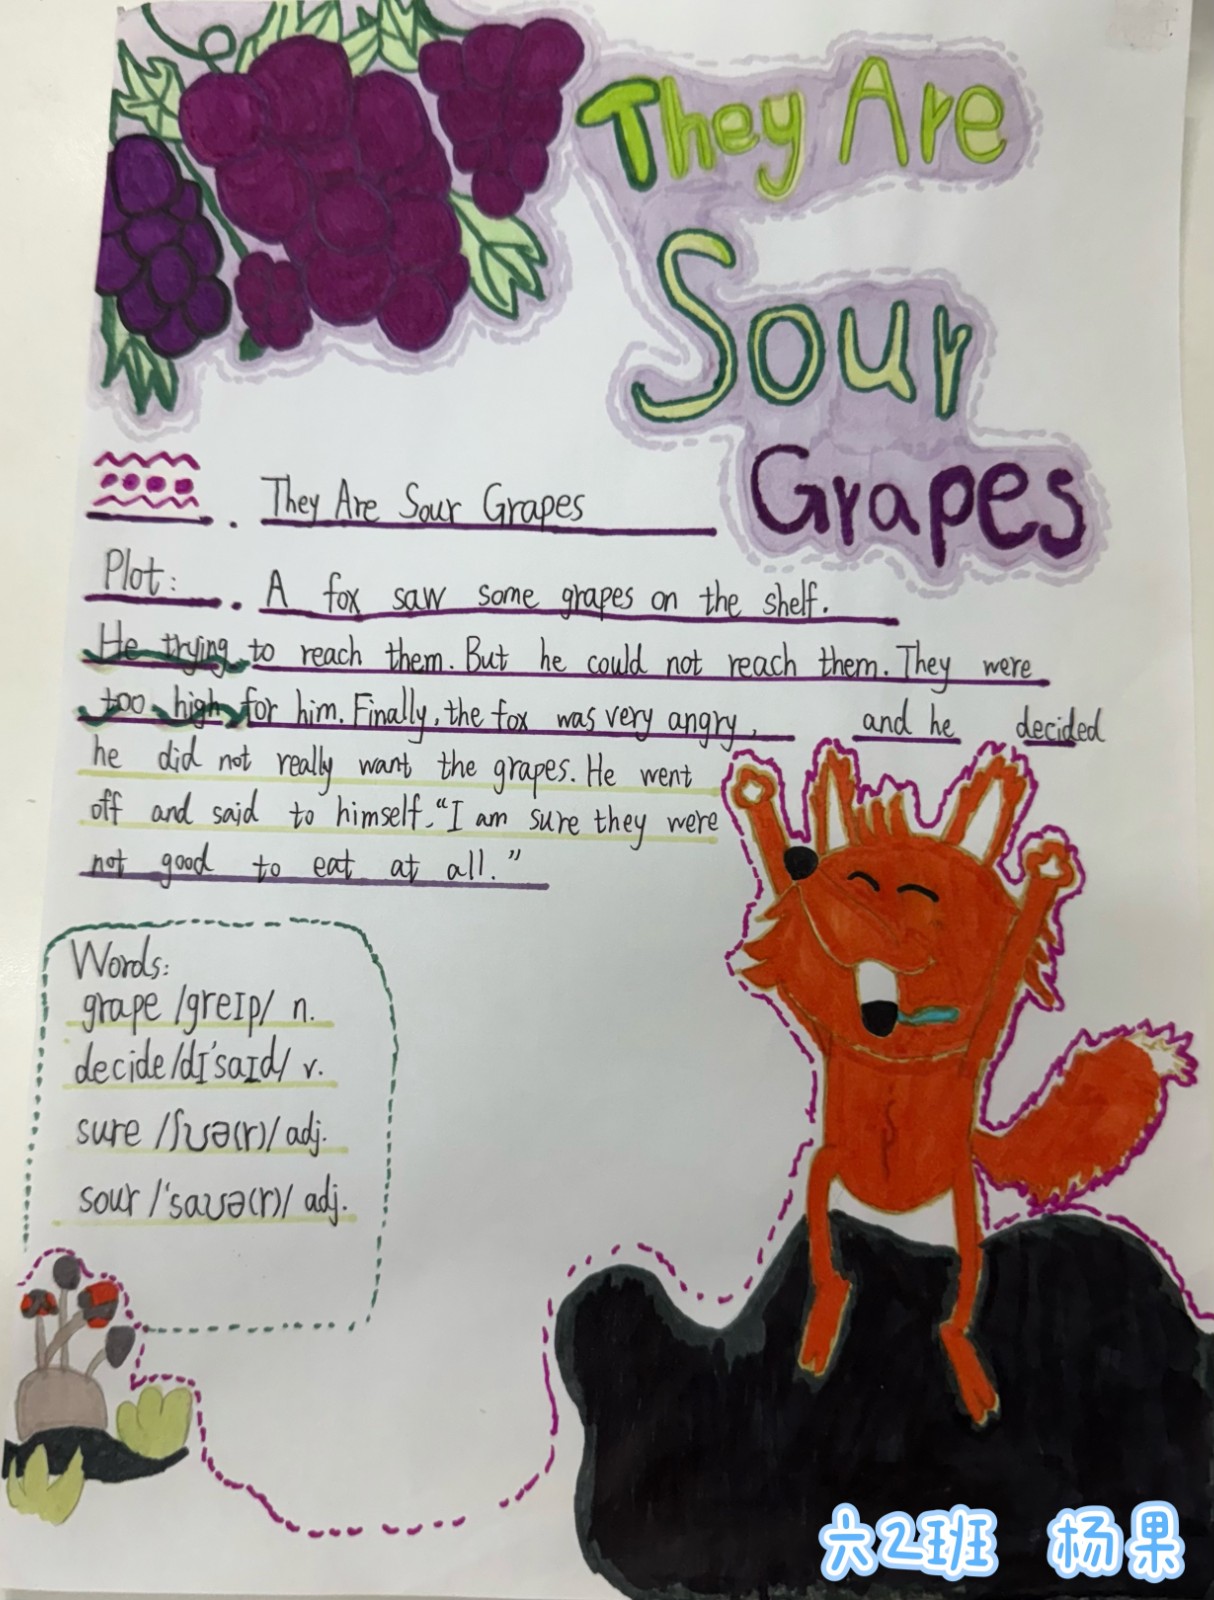 They Are
Sour
Grapes
They Are Sour Grapes
Plot: . A fox saw some grapes on the shelf.
He trying to reach them. But he could not reach them. They were
too high for him. Finally, the fox was very angry, and he decided
he did not really want the grapes. He went
off and said to himself, “I am sure they were
not good to eat at all.”
Words:
grape /greɪp/ n.
decide /dɪ'saɪd/ v.
sure /ʃʊə(r)/ adj.
sour /'saʊə(r)/ adj.
六2班 杨果